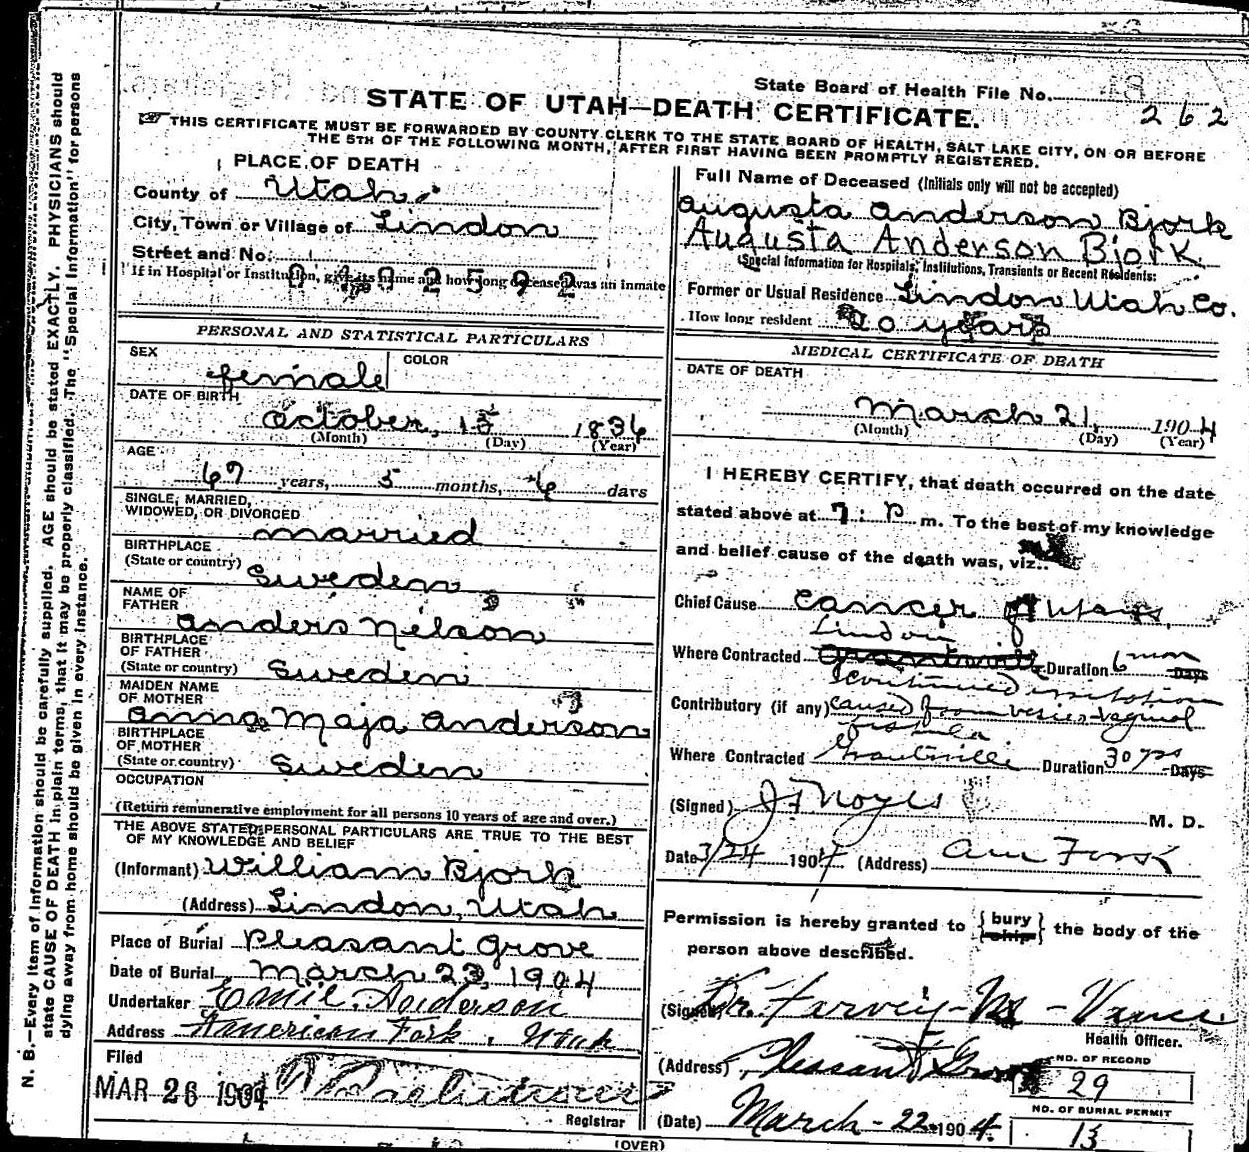 State Board of Health File No.
262
STATE OF UTAH—DEATH CERTIFICATE.
THIS CERTIFICATE MUST BE FORWARDED BY COUNTY CLERK TO THE STATE BOARD OF HEALTH, SALT LAKE CITY, ON OR BEFORE
THE 5TH OF THE FOLLOWING MONTH, AFTER FIRST HAVING BEEN PROMPTLY REGISTERED.
PLACE OF DEATH
County of Utah
City, Town or Village of Lindon
Street and No.
If in Hospital or Institution, give its name and how long deceased was an inmate
PERSONAL AND STATISTICAL PARTICULARS
SEX
COLOR
female
DATE OF BIRTH
October, 15 1836
(Month) (Day) (Year)
AGE
67 years, 5 months, 6 days
SINGLE, MARRIED,
WIDOWED, OR DIVORCED
married
BIRTHPLACE
(State or country) Sweden
NAME OF
FATHER
anders Nelson
BIRTHPLACE
OF FATHER
(State or country) Sweden
MAIDEN NAME
OF MOTHER
anna Maja anderson
BIRTHPLACE
OF MOTHER
(State or country) Sweden
OCCUPATION
(Return remunerative employment for all persons 10 years of age and over.)
THE ABOVE STATED PERSONAL PARTICULARS ARE TRUE TO THE BEST
OF MY KNOWLEDGE AND BELIEF
(Informant) William Bjork
(Address) Lindon, Utah
Place of Burial Pleasant Grove
Date of Burial March 23, 1904
Undertaker Emil Anderson
Address American Fork, Utah
Filed
MAR 26 1904
Registrar
Full Name of Deceased (Initials only will not be accepted)
augusta anderson Bjork
Augusta Anderson Bjork
(Special Information for Hospitals, Institutions, Transients or Recent Residents:
Former or Usual Residence Lindon Utah Co.
How long resident 20 years
MEDICAL CERTIFICATE OF DEATH
DATE OF DEATH
March 21, 1904
(Month) (Day) (Year)
I HEREBY CERTIFY, that death occurred on the date
stated above at 7: P m. To the best of my knowledge
and belief cause of the death was, viz.:
Chief Cause cancer of Uterus
Lindon
Where Contracted Grantsville Duration 6 mon Days
continued irritation
Contributory (if any) caused from vesico-vaginal
fistula
Where Contracted Grantsville Duration 30 yrs Days
(Signed) J F Noyes M. D.
Date 3/24 1904 (Address) Am Fork
Permission is hereby granted to {bury ship} the body of the
person above described.
(Signed) Dr. Harvey Vance
Health Officer.
(Address) Pleasant Grove
NO. OF RECORD
29
(Date) March - 22 1904.
NO. OF BURIAL PERMIT
13
(OVER)
N. B.—Every item of information should be carefully supplied. AGE should be stated EXACTLY. PHYSICIANS should
state CAUSE OF DEATH in plain terms, that it may be properly classified. The "Special Information" for persons
dying away from home should be given in every instance.